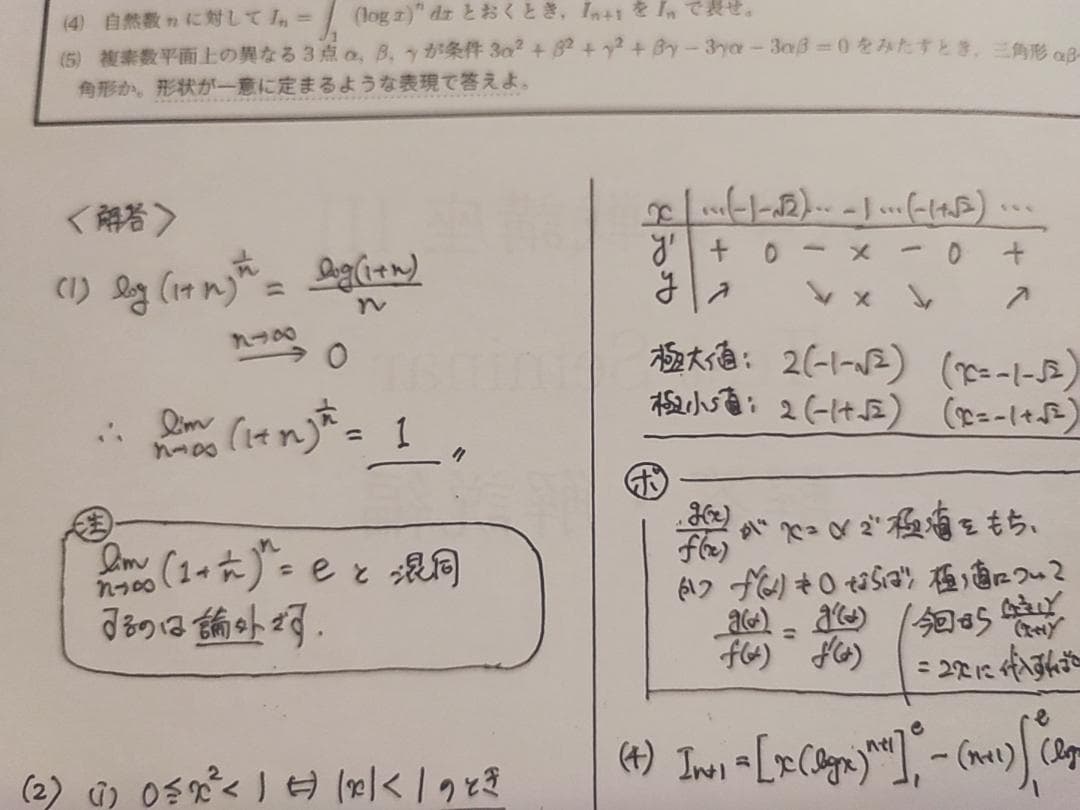 (4) 自然数 n に対して I_n = ∫_1 (log x)^n dx とおくとき, I_{n+1} を I_n で表せ.
(5) 複素数平面上の異なる3点 α, β, γ が条件 3α² + β² + γ² + βγ − 3γα − 3αβ = 0 をみたすとき, 三角形 αβ
角形か。形状が一意に定まるような表現で答えよ。
<解答>
(1) log(1+n)^{1/n} = log(1+n)/n
n→∞ → 0
∴ lim_{n→∞} (1+n)^{1/n} = 1 〃
注
lim_{n→∞} (1+1/n)^n = e と混同
するのは論外です.
(2) (i) 0≦x²<1 ⇔ |x|<1 のとき
x | … (-1-√2) … -1 … (-1+√2) …
y' | + 0 − × − 0 +
y | ↗ ↘ × ↘ ↗
極大値: 2(-1-√2) (x=-1-√2)
極小値: 2(-1+√2) (x=-1+√2)
ポ
g(x)/f(x) が x=α で 極値をもち、
かつ f'(α)≠0 ならば, 極値について
g(α)/f(α) = g'(α)/f'(α) (今回なら (x²+1)'/(x+1)'
= 2xに代入すれば
(4) I_{n+1} = [x(log x)^{n+1}]_1^e − (n+1)∫_1^e (log